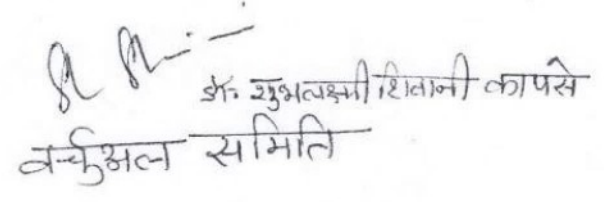 डॉ. शुभलक्ष्मी शिवानी कापसे
वर्च्युअल समिति